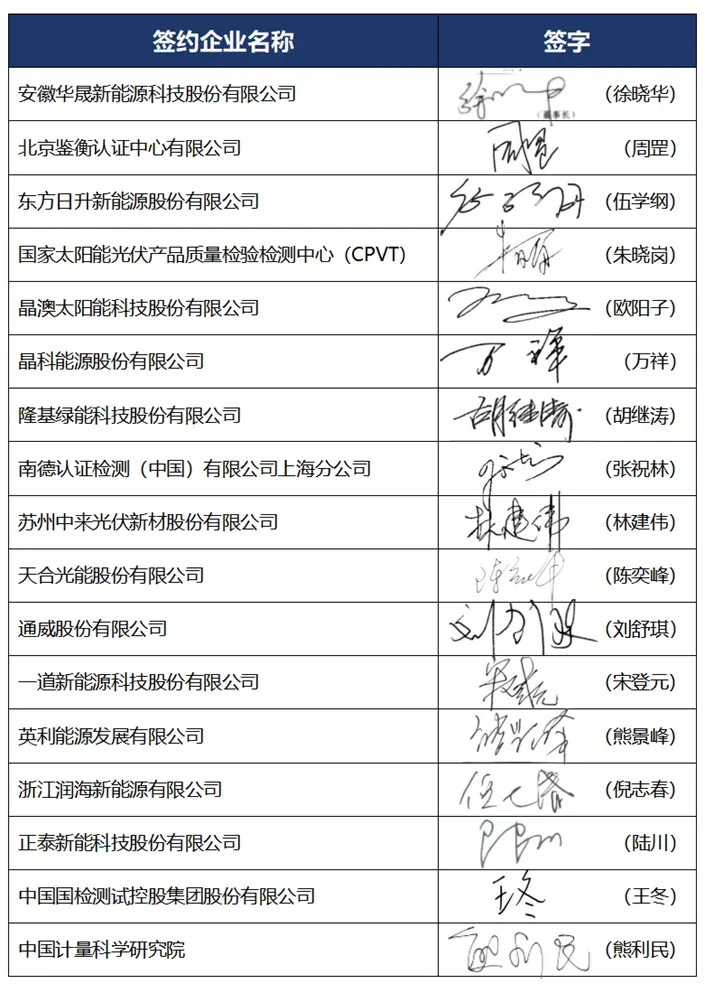 签约企业名称 签字
安徽华晟新能源科技股份有限公司 (董事长) (徐晓华)
北京鉴衡认证中心有限公司 周罡 (周罡)
东方日升新能源股份有限公司 (伍学纲)
国家太阳能光伏产品质量检验检测中心(CPVT) (朱晓岗)
晶澳太阳能科技股份有限公司 (欧阳子)
晶科能源股份有限公司 万祥 (万祥)
隆基绿能科技股份有限公司 胡继涛 (胡继涛)
南德认证检测(中国)有限公司上海分公司 (张祝林)
苏州中来光伏新材股份有限公司 林建伟 (林建伟)
天合光能股份有限公司 (陈奕峰)
通威股份有限公司 (刘舒琪)
一道新能源科技股份有限公司 宋登元 (宋登元)
英利能源发展有限公司 (熊景峰)
浙江润海新能源有限公司 (倪志春)
正泰新能科技股份有限公司 (陆川)
中国国检测试控股集团股份有限公司 王冬 (王冬)
中国计量科学研究院 熊利民 (熊利民)